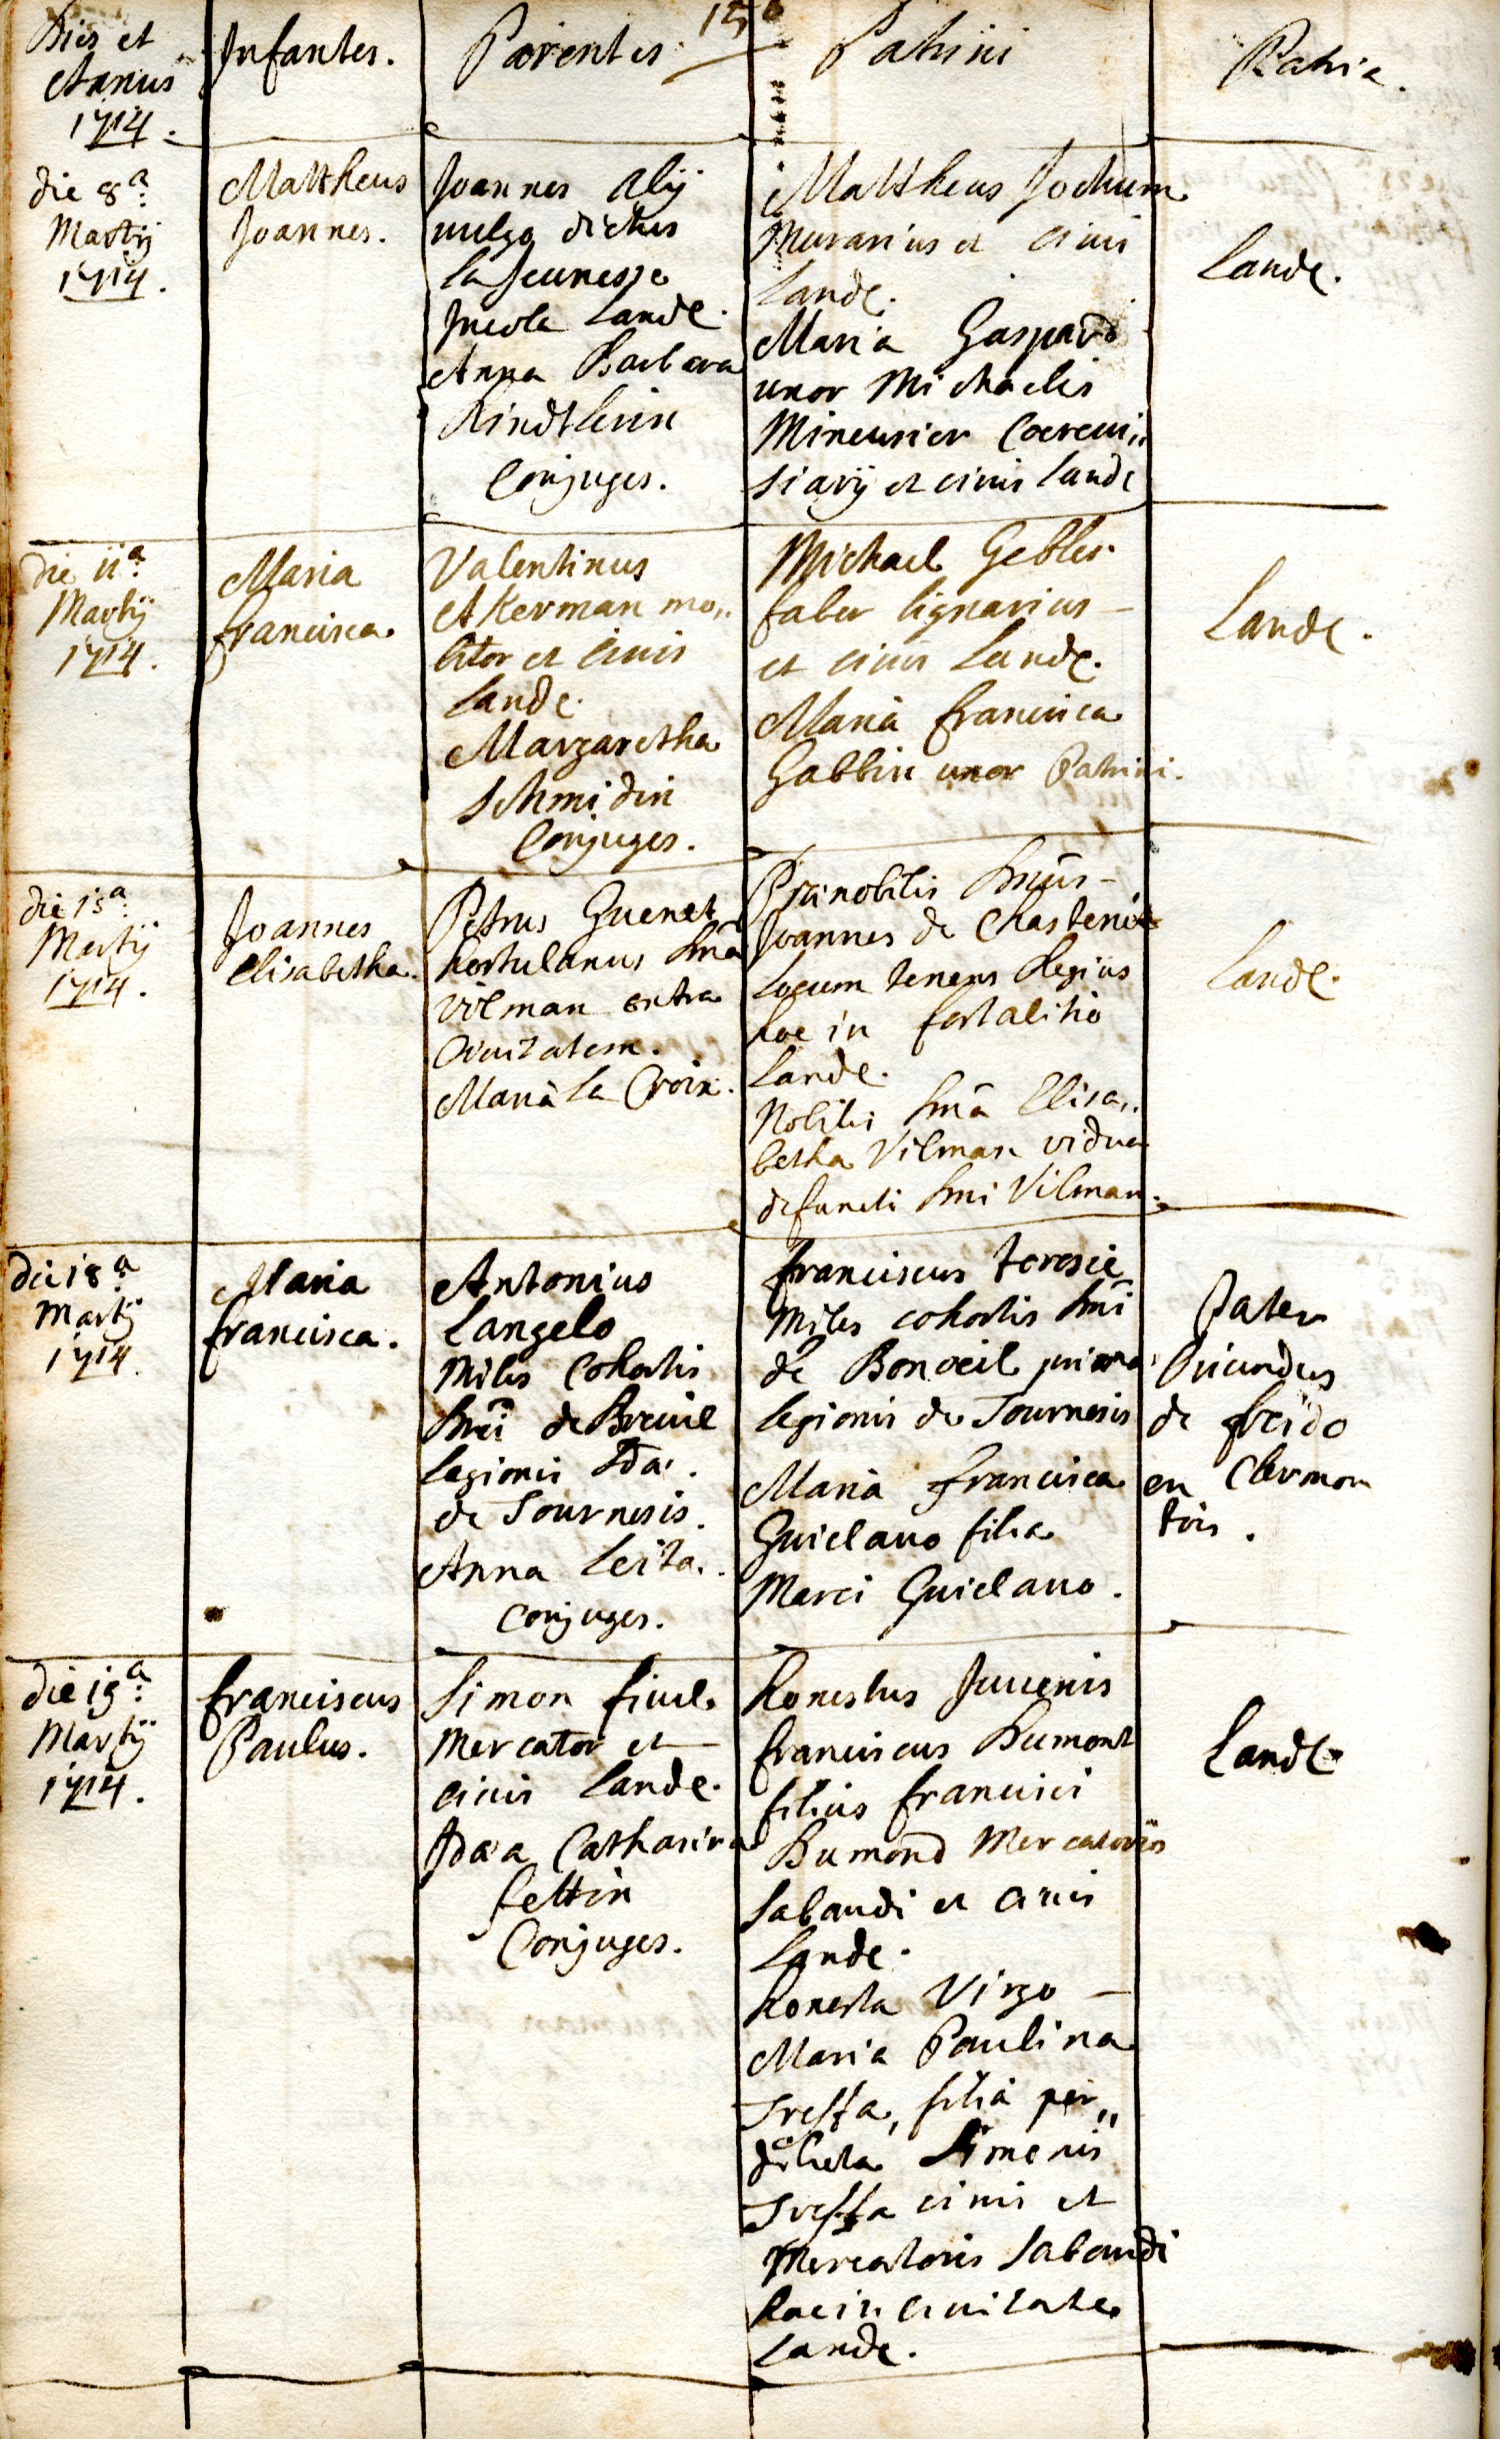 156
Dies et
Annus
1714.
Infantes.
Parentes.
Patrini
Patria.
die 8a
Martij
1714.
Mattheus
Joannes.
Joannes Alij
vulgo dictus
la Jeunesse
Incola Landę.
Anna Barbara
Conjuges.
Mattheus Jochum
Murarius et civis
Landę.
Maria Gaspard
uxor Michaelis
Mineurier Coerevi„
siarij et civis Landę
Landę.
die 11a
Martij
1714.
Maria
francisca.
Valentinus
Akerman mo„
litor et Civis
Landę.
Margaretha
Schmidin
Conjuges.
Michael Gebler
faber lignarius
et civis Landę.
Maria francisca
Gabbin uxor Patrini.
Landę.
die 15a
Martij
1714.
Joannes
Elisabetha.
Petrus Guenet
hortulanus Dnæ
Vilman extra
Civitatem.
Maria La Croix.
Prænobilis Dnus
Joannes de Chastenet
Locum tenens Regius
hoc in fortalitio
Landę.
Nobilis Dna Elisa„
betha Vilman vidua
defuncti Dni Vilman.
Landę.
die 18a
Martij
1714.
Maria
francisca.
Antonius
Langelo
Miles Cohortis
Dni de Breuil
legionis
de Tournesis.
Anna Leita.
conjuges.
franciscus teresie
Miles cohortis Dni
de Bonoeil
legionis de Tournesis
Maria francisca
Guielano filia
Marci Guielano.
Pater
Oriundus
de freido
en Clermon
tois.
die 19a
Martij
1714.
franciscus
Paulus.
Simon
Mercator et
civis Landę.
Idaa Catharina
fettin
Conjuges.
honestus Juvenis
franciscus Dumont
filius francisci
Dumond Mercatoris
Sabaudi et civis
Landę.
honesta Virgo
Maria Paulina
Tressa, filia per„
dilecta Simonis
Tressa civis et
Mercatoris Sabaudi
hac in civitate
Landę.
Landę